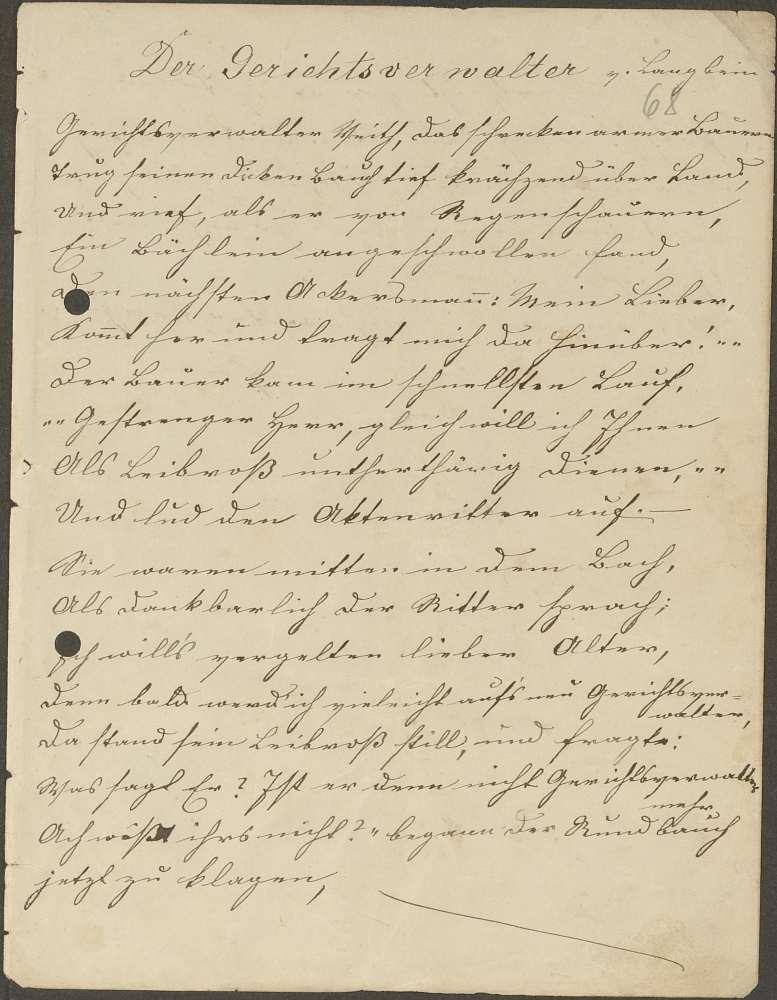 Der Gerichtsverwalter v. Langbein
68
Gerichtsverwalter Veith, das schrecken armer Bauern
Trug seinen dicken Bauch tief krächzend über Land,
Und rief, als er von Regenschauern,
Ein Bächlein angeschwollen fand,
Den nächsten Ackersmañ: Mein Lieber,
Kom̃t her und tragt mich da hinüber! „„
Der Bauer kam im schnellsten Lauf,
„„ Gestrenger Herr, gleich will ich Ihnen
Als Leibroß untherthänig dienen, „„
Und lud den Aktenritter auf. —
Sie waren mitten in dem Bach,
Als dankbarlich der Ritter sprach;
Ich will's vergelten lieber Alter,
Denn bald werd' ich vieleicht auf's neu Gerichtsver=
walter,
Da stand sein Leibroß still, und fragte:
Was sagt Er? Ist er denn nicht Gerichtsverwalter
mehr
Ach wißt ihrs nicht? „ begann der Rundbauch
jetzt zu klagen,